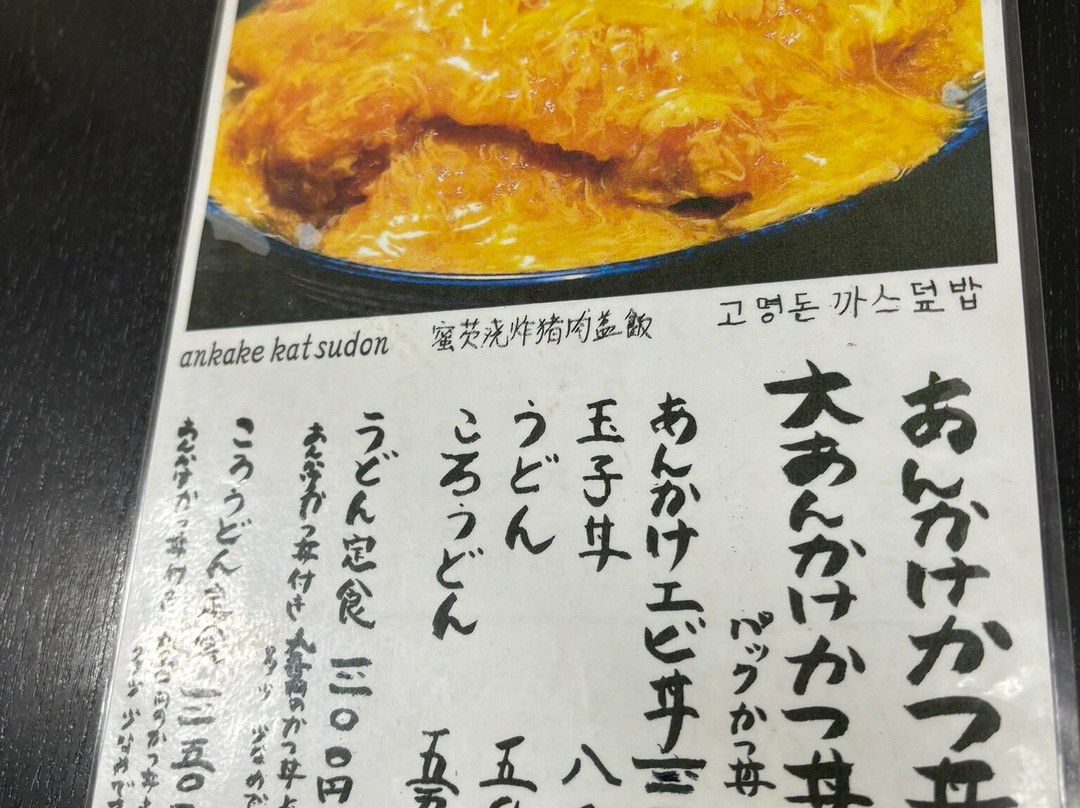 ankake katsudon
蜜芡浇炸猪肉盖飯
고명돈까스덮밥
おんかけかつ丼
大あんかけかつ丼
パックかつ丼
あんかけエビ丼
玉子丼
八
うどん
五
ころうどん
五五
うどん定食 一三〇〇円
あんかけかつ丼付き
ころうどん定食 一三五〇
あんかけかつ丼付き